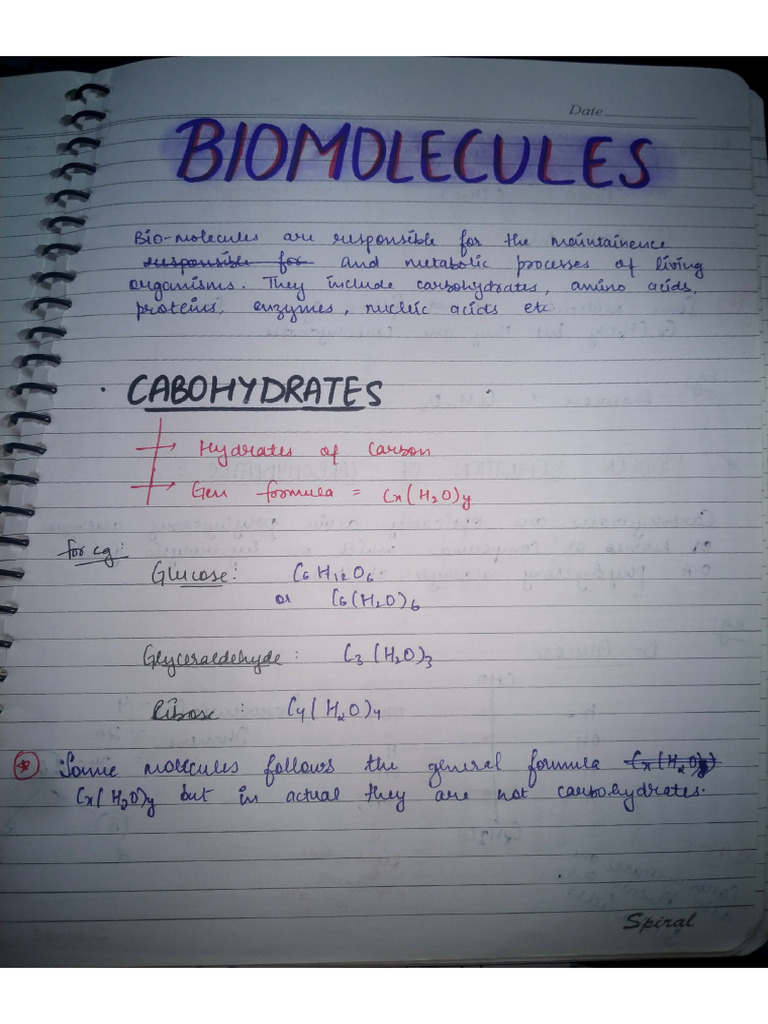 Date
BIOMOLECULES
Bio-molecules are responsible for the maintainence
responsible for and metabolic processes of living
organisms. They include carbohydrates, amino acids,
proteins, enzymes, nucleic acids etc
. CABOHYDRATES
→ Hydrates of Carbon
→ Gen formula = Cx(H2O)y
for eg:
Glucose: C6H12O6
or C6(H2O)6
Glyceraldehyde: C3(H2O)3
Ribose: C4(H2O)4
* Some molecules follows the general formula Cx(H2O)y
Cx(H2O)y but in actual they are not carbohydrates.
Spiral